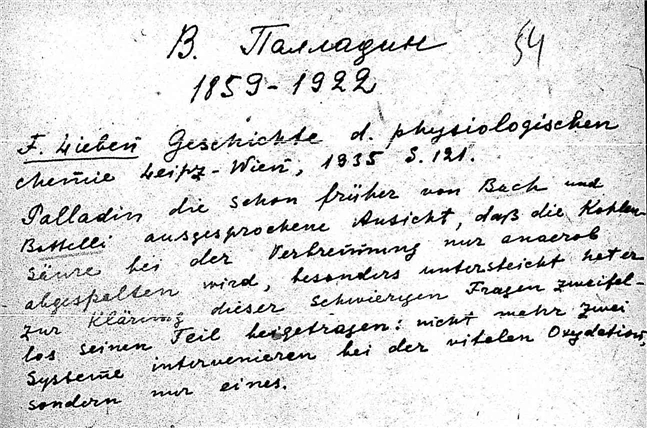 В. Палладин
54
1859-1922
F. Lieben Geschichte d. physiologischen
Chemie Leipz-Wien, 1935 S. 121.
Palladin die schon früher von Bach und
Battelli ausgesprochene Ansicht, daß die Kohlen-
säure bei der Verbrennung nur anaerob
abgespalten wird, besonders unterstreicht hat er
zur Klärung dieser schwierigen Fragen zweifel-
los seinen Teil beigetragen: nicht mehr zwei
Systeme intervenieren bei der vitalen Oxydation,
sondern nur eines.